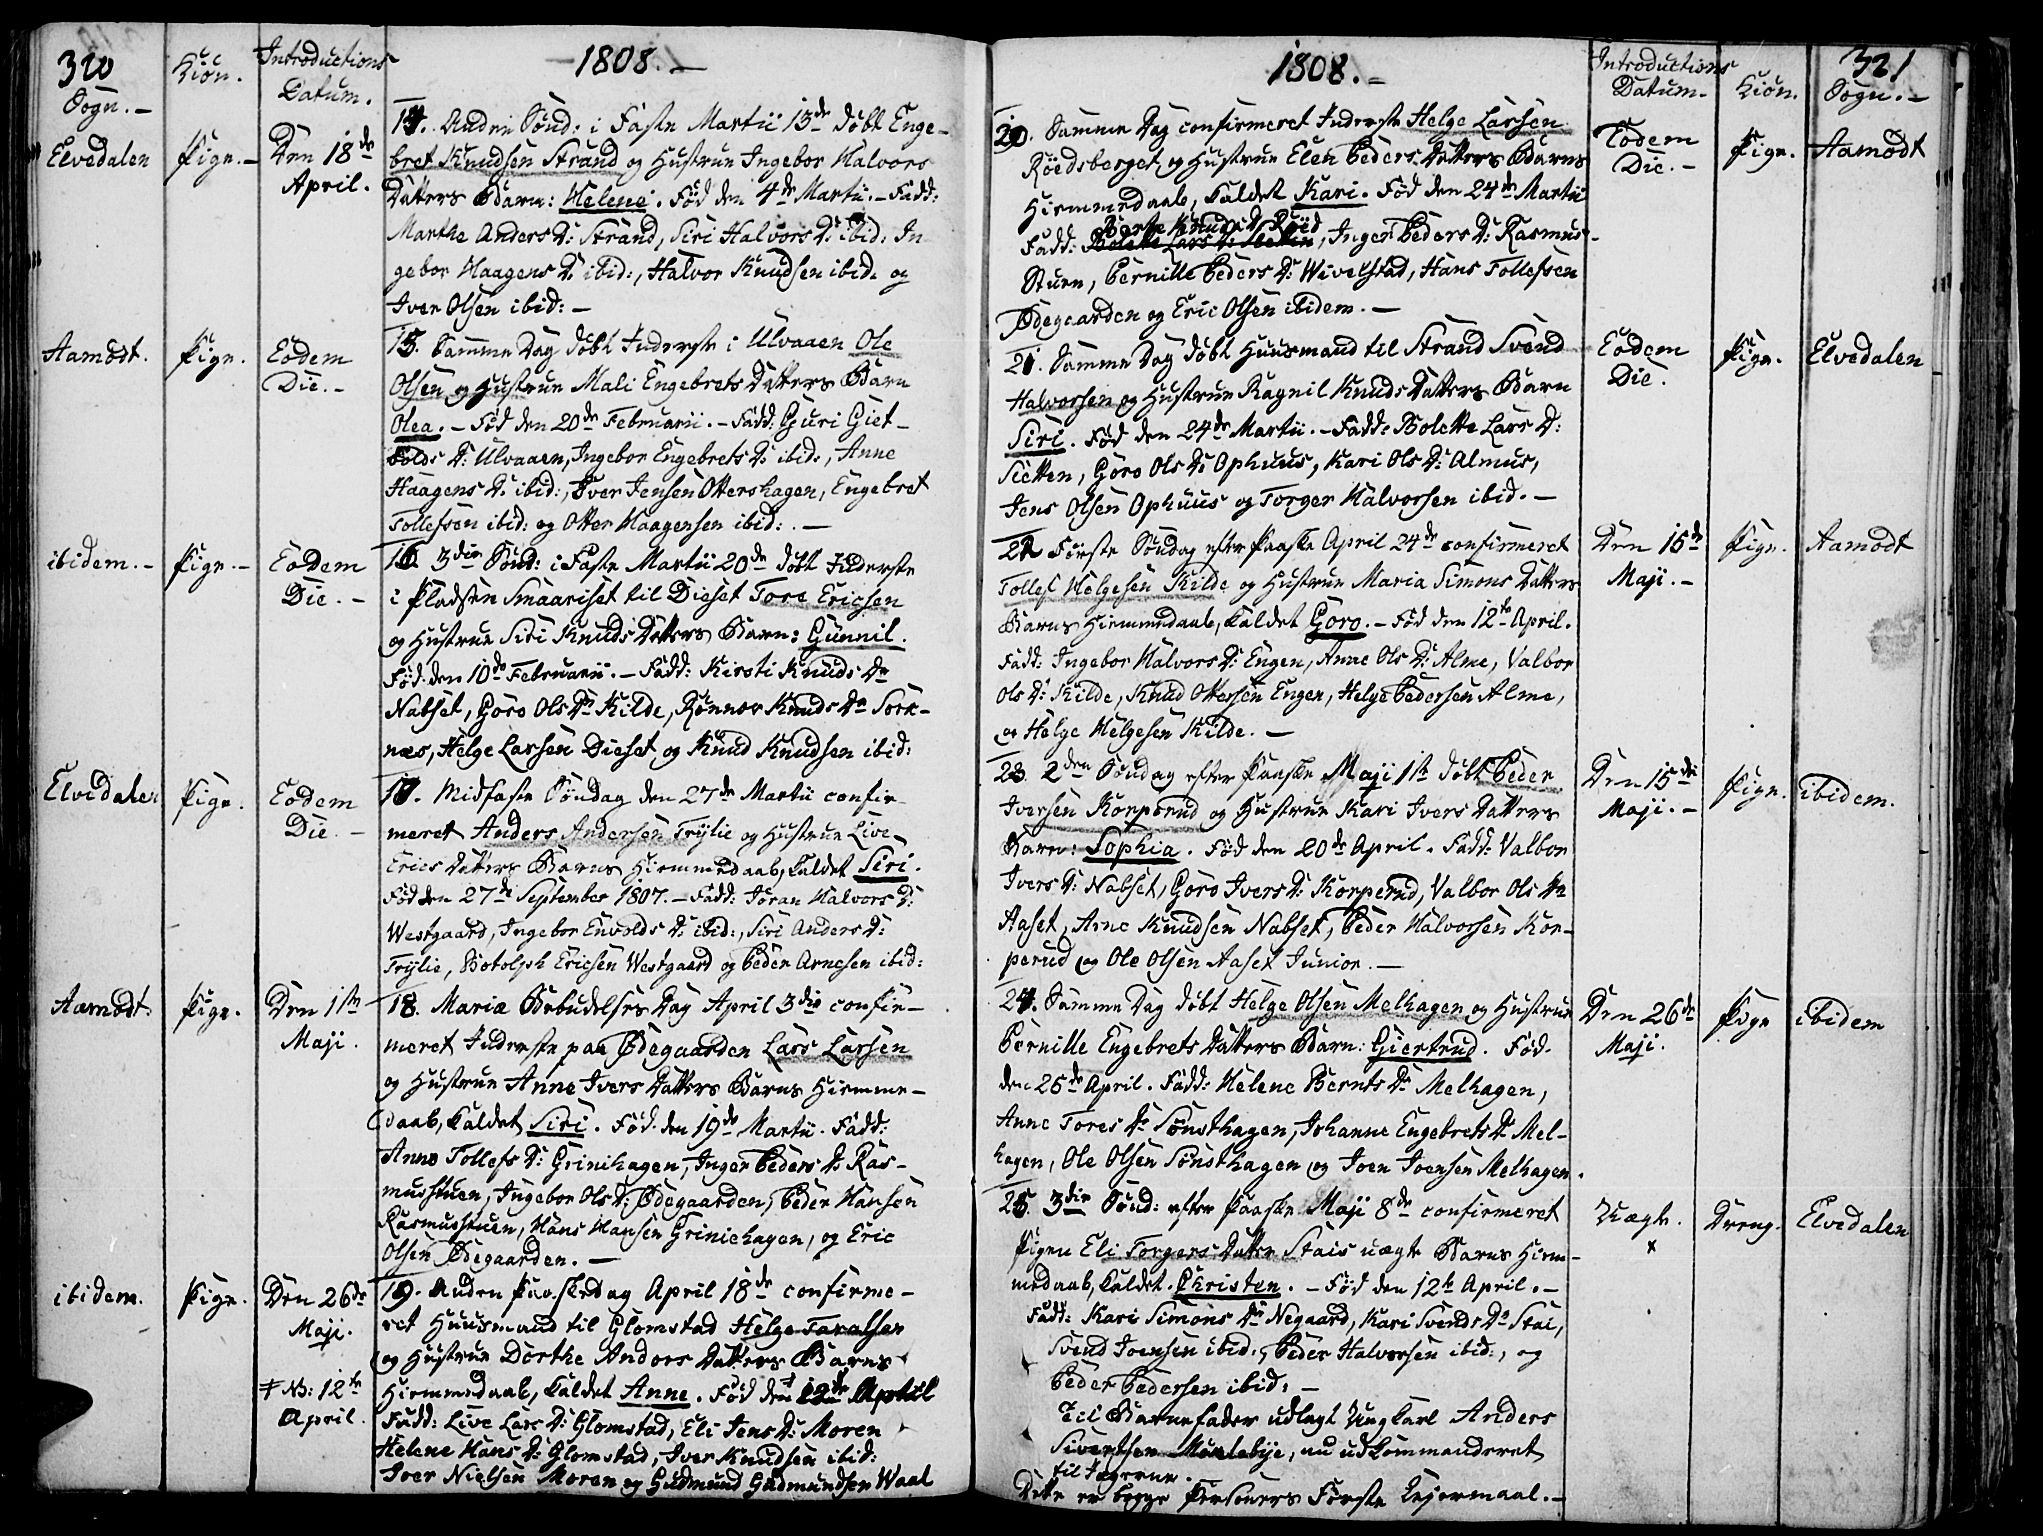 320
Sogn.-
Kiön.
Introductions
Datum.
-1808.-
Elvedalen
Pige.-
Den 18de
April.
14. Anden Sönd: i Faste Martii 13de döbt Enge-
bret Knudsen Strand og Hustrue Ingebor Halvors
Datters Barn: Helene. Föd den 4de Martii.- Fadd:
Marthe Anders D: Strand, Siri Halvors D: ibid: In-
gebor Haagens D: ibid:, Halvor Knudsen ibid: og
Iver Olsen ibid:-
Aamodt.
Pige.
Eodem
Die.-
15. Samme Dag döbt Inderste i Ulvaaen Ole
Olsen og Hustrue Mali Engebrets Datters Barn
Olea.- Föd den 20de Februarii.- Fadd: Guri Giet-
D: Ulvaaen, Ingebor Engebrets D: ibid:, Anne
Haagens D: ibid:, Iver Jensen Ottershagen, Engebret
Tollefsen ibid: og Otter Haagensen ibid:.-
ibidem.-
Pige.-
Eodem
Die.-
16. 3die Sönd: i Faste Martii 20de döbt Inderste
i Pladsen Smaariset til Dieset Tore Ericsen
og Hustrue Siri Knuds Datters Barn: Gunnil.
Föd den 10de Februarii.- Fadd: Kirsti Knuds Dr
Nabset, Goro Ols Dr Kilde, Rönnov Knuds Dr Sork-
næs, Helge Larsen Dieset og Knud Knudsen ibid:
Elvedalen
Pige.
Eodem
Die.-
17. Midfaste Söndag den 27de Martii confir-
meret Anders Andersen Trÿlie og Hustrue Live
Erics Datters Barns Hiemmedaab, kaldet Siri.
Föd den 27de September 1807.- Fadd: Jöran Halvors D:
Westgaard, Ingebor Envolds D: ibid:, Siri Anders D:
Trÿlie, Botolph Ericsen Westgaard og Peder Arnesen ibid:
Aamodt
Pige.
Den 1ste
Maji.
18. Mariæ Bebudelses Dag April 3die confir-
meret Inderste paa Ödegaarden Lars Larsen
og Hustrue Anne Ivers Datters Barns Hiemme-
daab, kaldet Siri. Föd den 19de Martii. Fadd:
Anne Tollefs D: Grinihagen, Inger Peders D: Ras-
musstuen, Ingebor Ols D: Ödegaarden, Peder Hansen
Rasmusstuen, Hans Hansen Griniehagen, og Eric
Olsen Ödegaarden.-
ibidem.
Pige.
Den 26de
Maji.
‡ NB: 12te
April.
19. Anden Paaskedag April 18de confirme-
ret Huusmand til Glomstad Helge Taralsen
og Hustrue Dorthe Anders Datters Barns
Hiemmedaab, kaldet Anne. Föd den 12te April
Fadd: Live Lars D: Glomstad, Eli Jens D: Moren
Helene Hans D: Glomstad, Iver Knudsen ibid:
Iver Nielsen Moren og Gudmund Gudmundsen Waal
1808.-
Introductions
Datum.-
Kiön.
321
Sogn.-
20. Samme Dag confirmeret Inderste Helge Larsen
Röedsberget og Hustrue Elen Peders Datters Barns
Hiemmedaab, kaldet Kari. Föd den 24de Martii
Berte Knuds D: Röed
Fadd: Bolette Lars D: Sletten, Inger Peders D: Rasmus-
stuen, Pernille Peders D: Wivelstad, Hans Tollefsen
Ödegaarden og Eric Olsen ibidem.-
Eodem
Die.-
Pige.
Aamodt
21. Samme Dag döbt Huusmand til Strand Svend
Halvorsen og Hustrue Ragnil Knuds Datters Barn
Siri. Föd den 24de Martii.- Fadd: Bolette Lars D:
Sletten, Goro Ols D: Ophuus, Kari Ols D: Almus,
Jens Olsen Ophuus og Torger Halvorsen ibid.-
Eodem
Die.
Pige.
Elvedalen
22. Förste Söndag efter Paaske April 24de confirmeret
Tollef Helgesen Kilde og Hustrue Maria Simons Datters
Barns Hiemmedaab, kaldet Goro.- Föd den 12te April.
Fadd: Ingebor Halvors D: Engen, Anne Ols D: Alme, Valbor
Ols D: Kilde, Knud Ottersen Engen, Helge Pedersen Alme,
og Helge Helgesen Kilde.-
Den 15de
Maji.-
Pige.
Aamodt
23. 2den Söndag efter Paaske Maji 1ste döbt Peder
Iversen Korperud og Hustrue Kari Ivers Datters
Barn: Sophia. Föd den 20de April. Fadd: Valbor
Ivers D: Nabset, Goro Ivers D: Korperud, Valbor Ols Dr
Aaset, Arne Knudsen Nabset, Peder Halvorsen Kor-
perud og Ole Olsen Aaset Junior.-
Den 15de
Maji.-
Pige.
ibidem.
24. Samme Dag döbt Helge Olsen Melhagen og Hustrue
Pernille Engebrets Datters Barn: Giertrud. Föd
den 25de April. Fadd: Helene Bernts Dr Melhagen,
Anne Tores Dr Sönsthagen, Johanne Engebrets Dr Mel-
hagen, Ole Olsen Sönsthagen og Joen Joensen Melhagen.
Den 26de
Maji.
Pige
ibidem
25. 3die Sönd: efter Paaske Maji 8de confirmeret
Pigen Eli Torgers Datter Stais uægte Barns Hiem-
medaab, kaldet Christen.- Föd den 12te April.-
Fadd: Kari Simons Dr Negaard, Kari Svends Dr Stai,
Svend Joensen ibid:, Peder Halvorsen ibid:, og
Peder Pedersen ibid:-
Til Barnefader udlagt Ungkarl Anders
Sivertsen Mæhlebÿe, nu udkommanderet
til
Dette er begge Personers Förste Leiermaal.-
Uægte.
x
Dreng.
Elvedalen